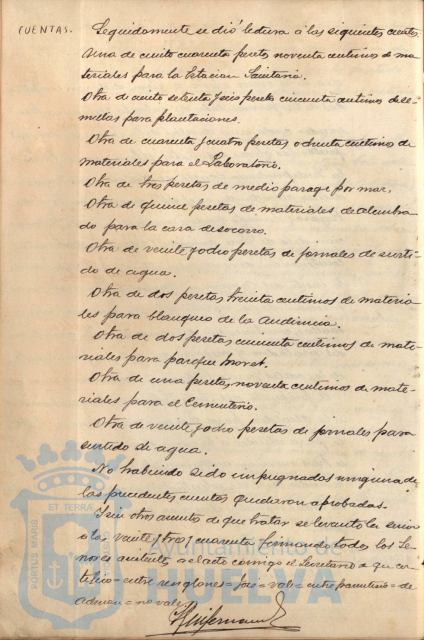 CUENTAS.
Seguidamente se dió lectura á las siguientes cuentas
Una de ciento cuarenta pesetas noventa centimos de ma-
teriales para la Estacion Sanitaria.
Otra de ciento setenta y seis pesetas cincuenta centimos de se-
millas para plantaciones.
Otra de cuarenta y cuatro pesetas ochenta centimos de
materiales para el Laboratorio.
Otra de tres pesetas de medio pasage por mar.
Otra de quince pesetas de materiales de alumbra-
do para la casa de socorro.
Otra de veinte y ocho pesetas de jornales de surti-
do de agua.
Otra de dos pesetas treinta centimos de materia-
les para blanqueo de la Audiencia.
Otra de dos pesetas cincuenta centimos de mate-
riales para parque Moret.
Otra de una peseta noventa centimos de mate-
riales para el Cementerio.
Otra de veinte y ocho pesetas de jornales para
surtido de agua.
No habiendo sido impugnadas ninguna de
las precedentes cuentas quedaron aprobadas.
Y sin otros asuntos de que tratar se levanto la sesion
a las veinte y tres y cuarenta firmando todos los Se-
ñores asistentes al acto conmigo el Secretario de que cer-
tifico = entre renglones = = vale = entre parentesis = de
= no vale
PORTUS MARIS ET TERRAE
Ayuntamiento de
HUELVA